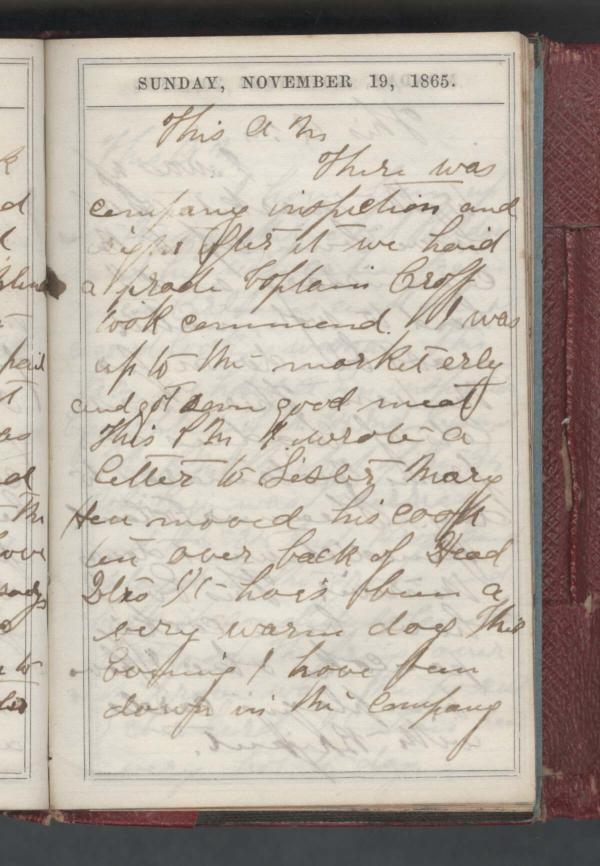 SUNDAY, NOVEMBER 19, 1865.
This A. M.
There was
company inspection and
right after it we haid
a prade Coptain Croff
took commend. I was
up to the market erly
and got some good meat
This P M I wrote a
letter to Sister Mary
Hen mooved his cook
ten over back of Head
Qtrs It hars been a
very warm day This
Evening I have been
down in the Company